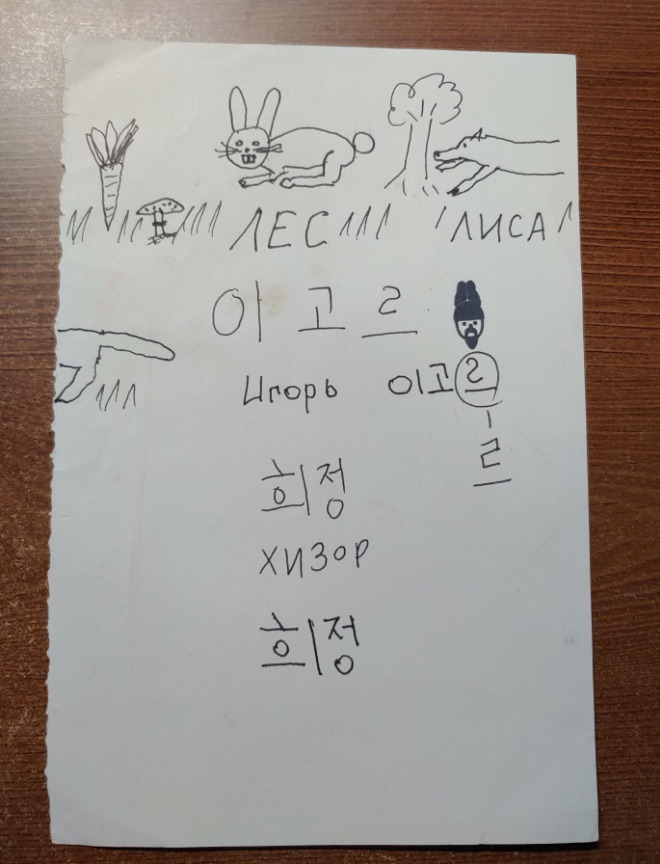 ЛЕС ЛИСА
이고르
Игорь 이고르
르
희정
хизор
희정